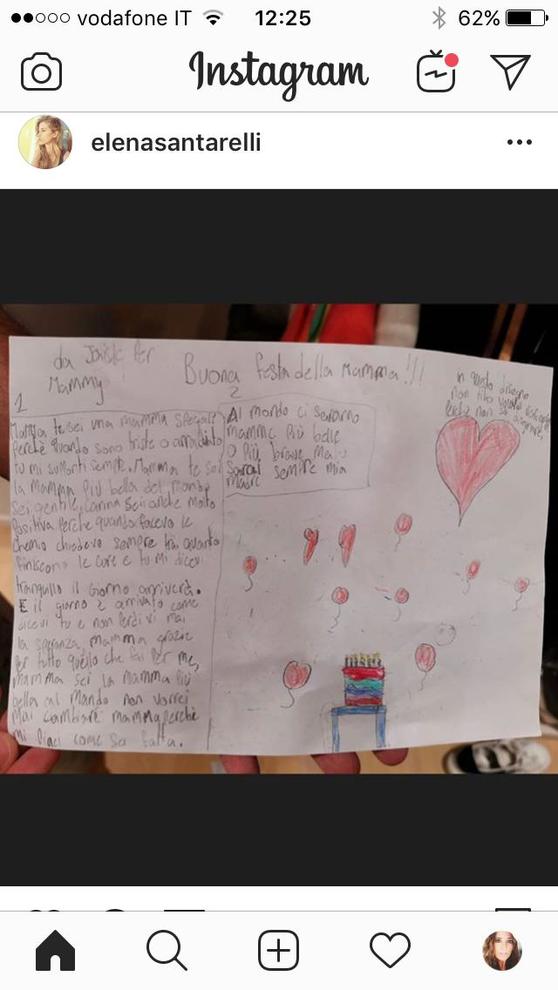 vodafone IT
12:25
62%
Instagram
elenasantarelli
da per
Mammy
Buona festa della Mamma!!!
in questo disegno
non
non
1
2
Mamma te sei una mamma speciale
Perchè quando sono triste o arrabbiato
tu mi sempre. Mamma te sei
la mamma più bella del mondo
sei gentile, carina sei anche molto
Positiva Perche quando facevo le
chemio chiedevo sempre tra quanto
finiscono le cure e tu mi dicevi
tranquillo il giorno arriverà.
E il giorno è arrivato come
dicevi tu e non perdivi mai
la speranza, mamma grazie
Per tutto quello che fai per me,
mamma sei la mamma più
bella al Mondo non vorrei
Mai cambiare mamma perchè
mi piaci come sei fatta.
Al mondo ci saranno
mamme più belle
o più brave ma tu
sarai sempre mia
madre